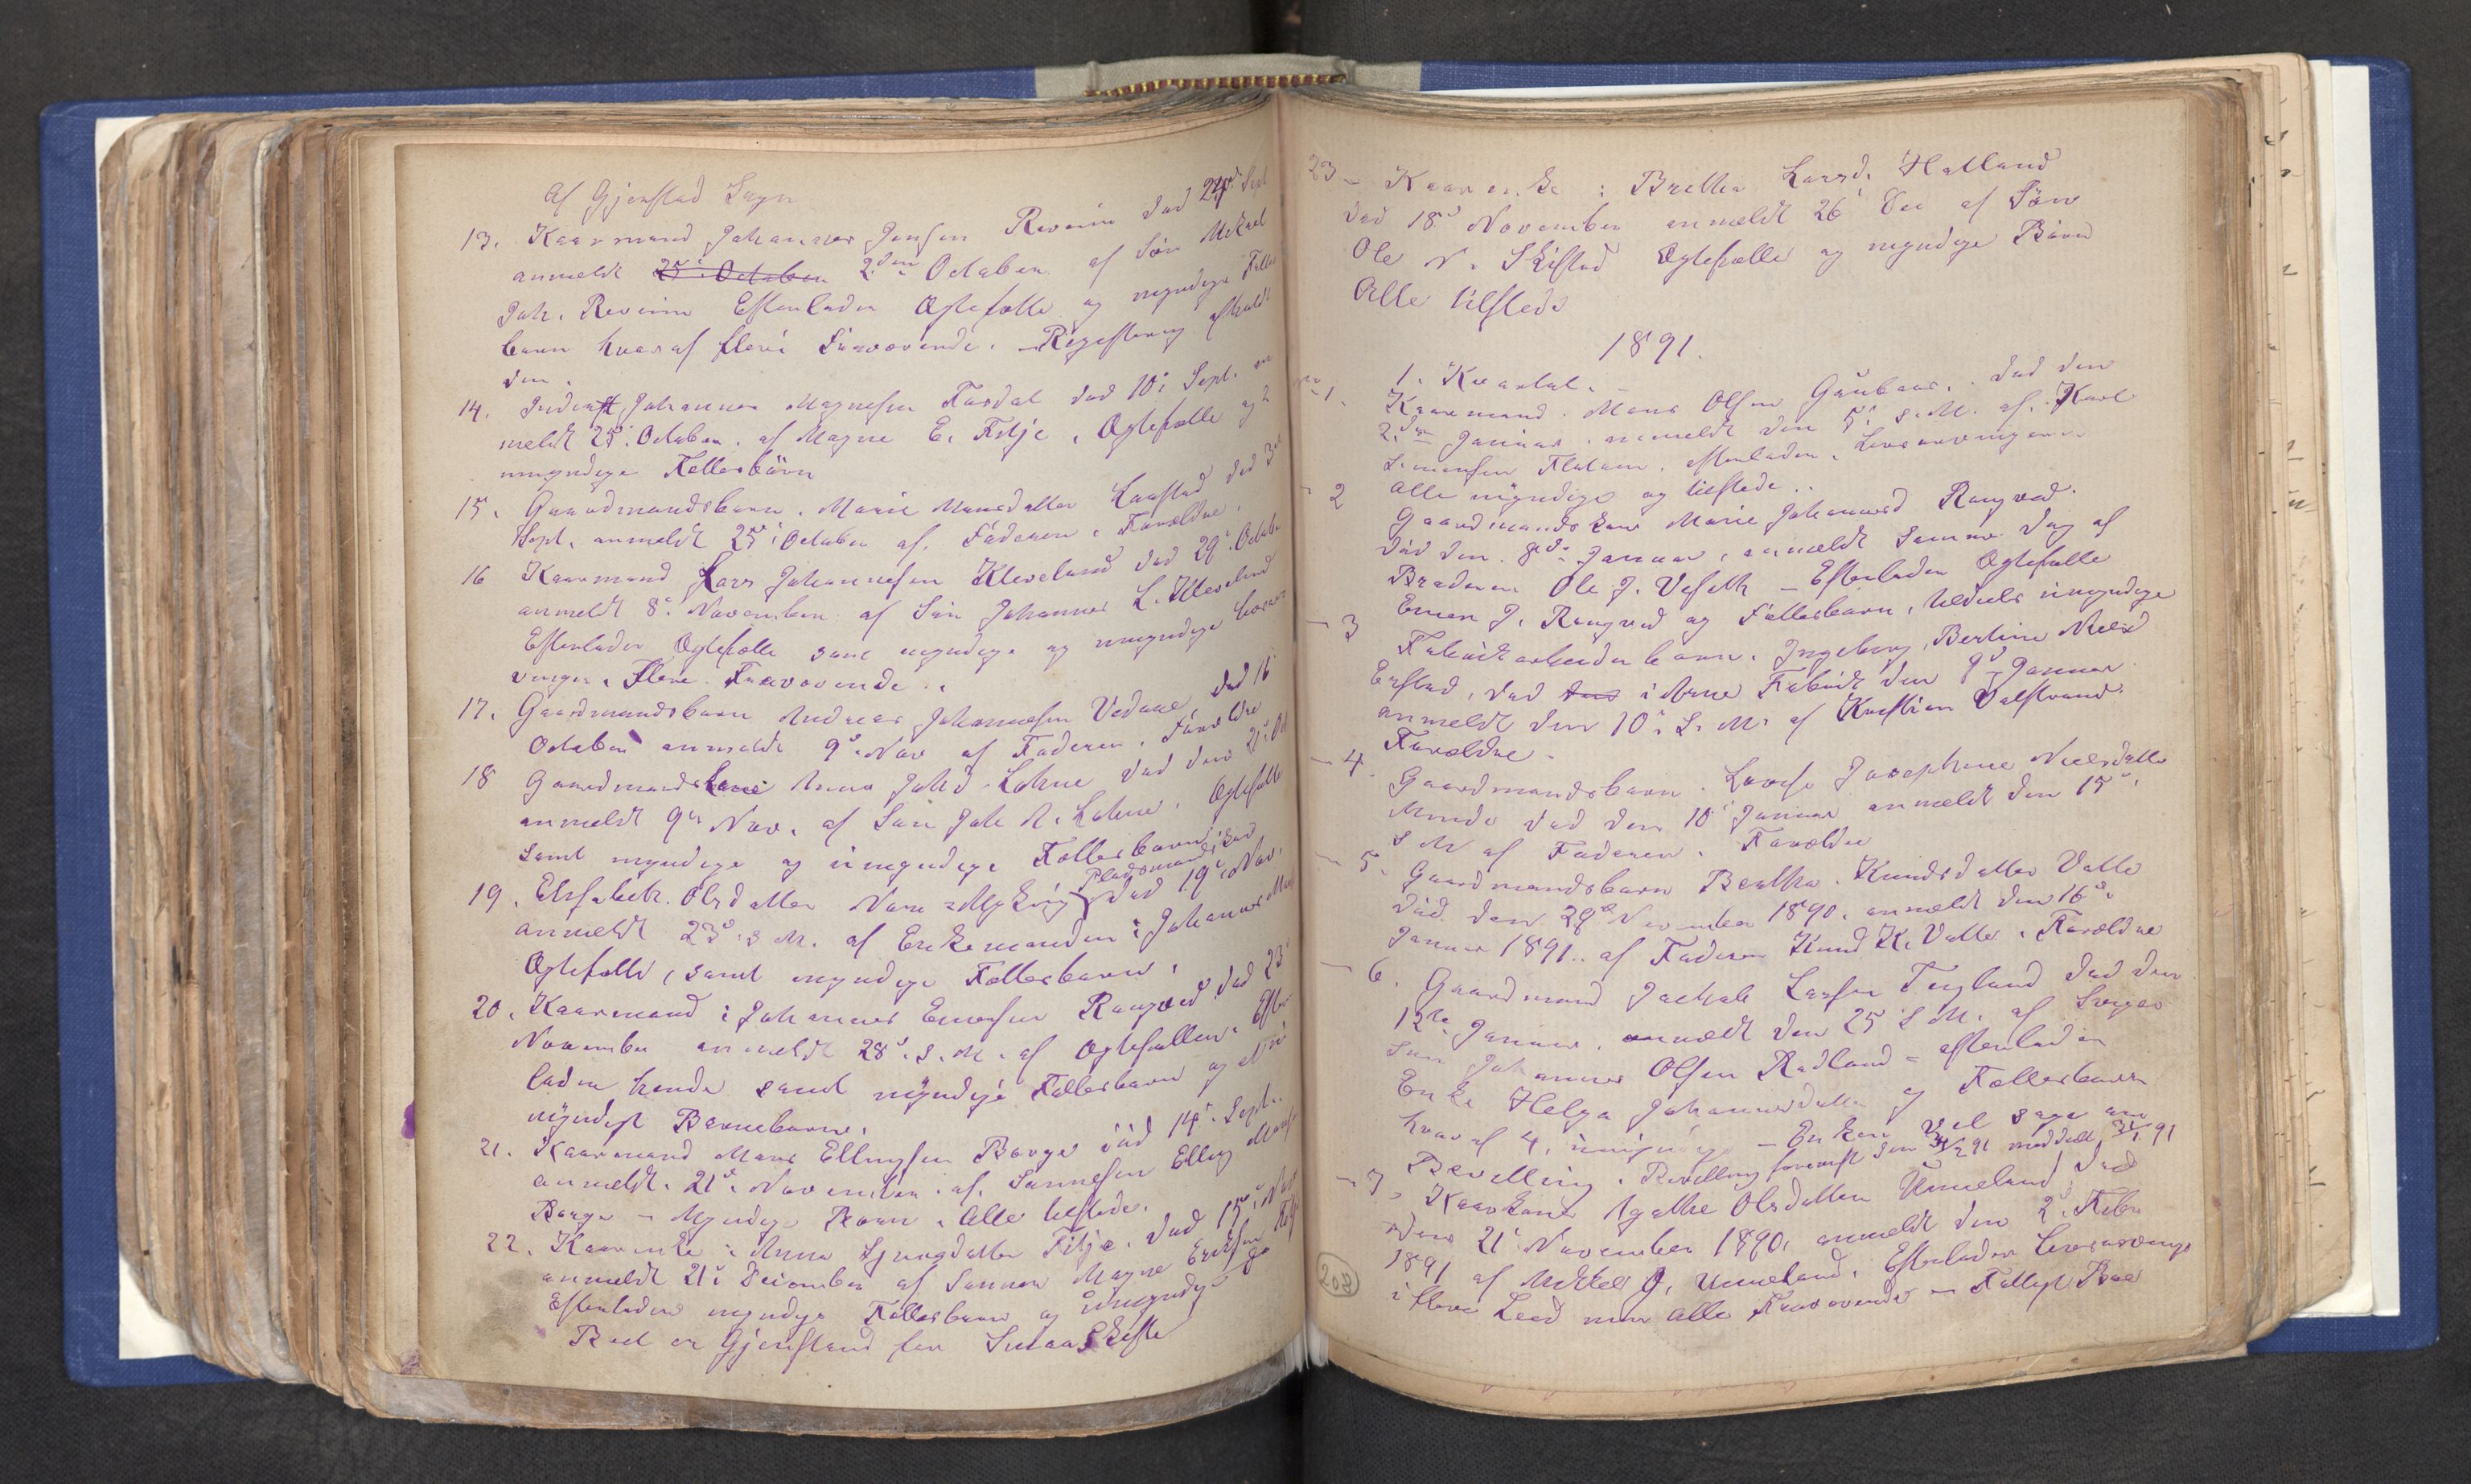 Af Gjerstad Sogn
13. Kaarmand Johannes Jensen Reveim død 24de Sept
anmeldt 25de October 2den October af Søn Mikael
Joh. Reveim Efterlader Ægtefælle og myndige Fælles
børn hvoraf flere Fraværende. – Registrering afholdt
den.
14. Inderst Johannes Magnesen Fosdal død 10de Sept. an
meldt 25de October. af Magne E. Fitje, Ægtefælle og 2
umyndige Fællesbörn
15. Gaardmandsbarn. Marie Monsdatter død 3de
Sept. anmeldt 25de October af. Faderen. Forældre.
16 Kaarmand Lars Johannesen Kleveland død 29de October
anmeldt 8de November af Søn Johannes L. Kleveland
Efterlader Ægtefælle samt myndige og umyndige Livsar
vinger. Flere Fraværende.
17. Gaardmandsbarn Andreas Johannesen Vedaae, død 16
October anmeldt 9de Nov af Faderen. Forældre
18 Gaardmandskone Anna Johsd. Lohne død den 21de Oct
anmeldt 9de Nov. af Søn Joh A. Lohne. Ægtefælle
samt myndige og umyndige Fællesbørn
Pladsmandskone
19. Elisabeth Olsdatter MykING død 19de Nov.
anmeldt 23de s. M. af Enkemanden Johannes
Ægtefælle, samt myndige Fællesbørn.
20. Kaarmand Johannes Einersen Rongved død 23de
November anmeldt 28de s. M. af Ægtefællen. Efter
lader hende samt myndige Fællesbørn og et u
myndigt Barnebarn.
21. Kaarmand Mons Ellingsen Borge död 14de Sept.
anmeldt. 21de November. af. Sønnesøn Elling Monsen
Borge – Myndige Børn. Alle tilstede.
22. Kaarenke Anna Sjursdatter Fitje. død 15de Nov
anmeldt 21de December af Sønnen Magne Eriksen Fitje
Efterlader myndige Fællesbørn og umyndige
Boet er Gjenstand for
23 – Kaarenke: Brithe Larsd. Hatland
død 18de November anmeldt 26 Dec af Søn
Ole N. Skistad Ægtefælle og myndige Børn
Alle tilstede
1891.
1. Kvartal.
No 1. Kaarmand. Mons Olsen død den
2den Januar. anmeldt den 5te s. M. af. Karl
Simonsen Flatuen. efterlader. Livsarvinger
alle myndige og tilstede..
– 2 Gaardmandskone Marie Johannesd Rongved.
død den 8de Januar, anmeldt samme Dag af
Broderen Ole J. Veseth – Efterlader Ægtefælle
Einer J. Rongved og Fællesbørn, tildels umyndige
– 3 Fabrikarbeiderbarn. Ingeborg Bertine Nielsd
død den i Arne Fabrik den 9de Januar
anmeldt den 10de s. M. af Kristian Valstrand.
Forældre –
– 4. Gaardmandsbarn. Lovise Josephine Nielsdatter
Minde død den 10de Januar anmeldt den 15de
s M af Faderen. Forældre
– 5. Gaardmandsbarn Berthe. Knudsdatter Valle
död den 29de November 1890. anmeldt den 16de
Januar 1891.. af Faderen Knud K. Valle. Forældre
– 6. Gaardmand Jachob Larsen Tengland død den
12te Januar. anmeldt den 25 s M. af Sviger
søn Johannes Olsen Rødland – efterlader
Enke Helga Johannesdatter og Fællesbørn
hvoraf 4, umyndige – Enken vil søge om
Bevilling. Bevilling foreviist den 3/2 91 meddelt 91
– 7. Kaarkone Agathe Olsdatter Unneland, død
den 21de November 1890. anmeldt den 2de Febr
1891 af Mikkel J. Unneland. Efterlader Livsarvinge
i flere Leed men alle Fraværende – Fælles Boe
208